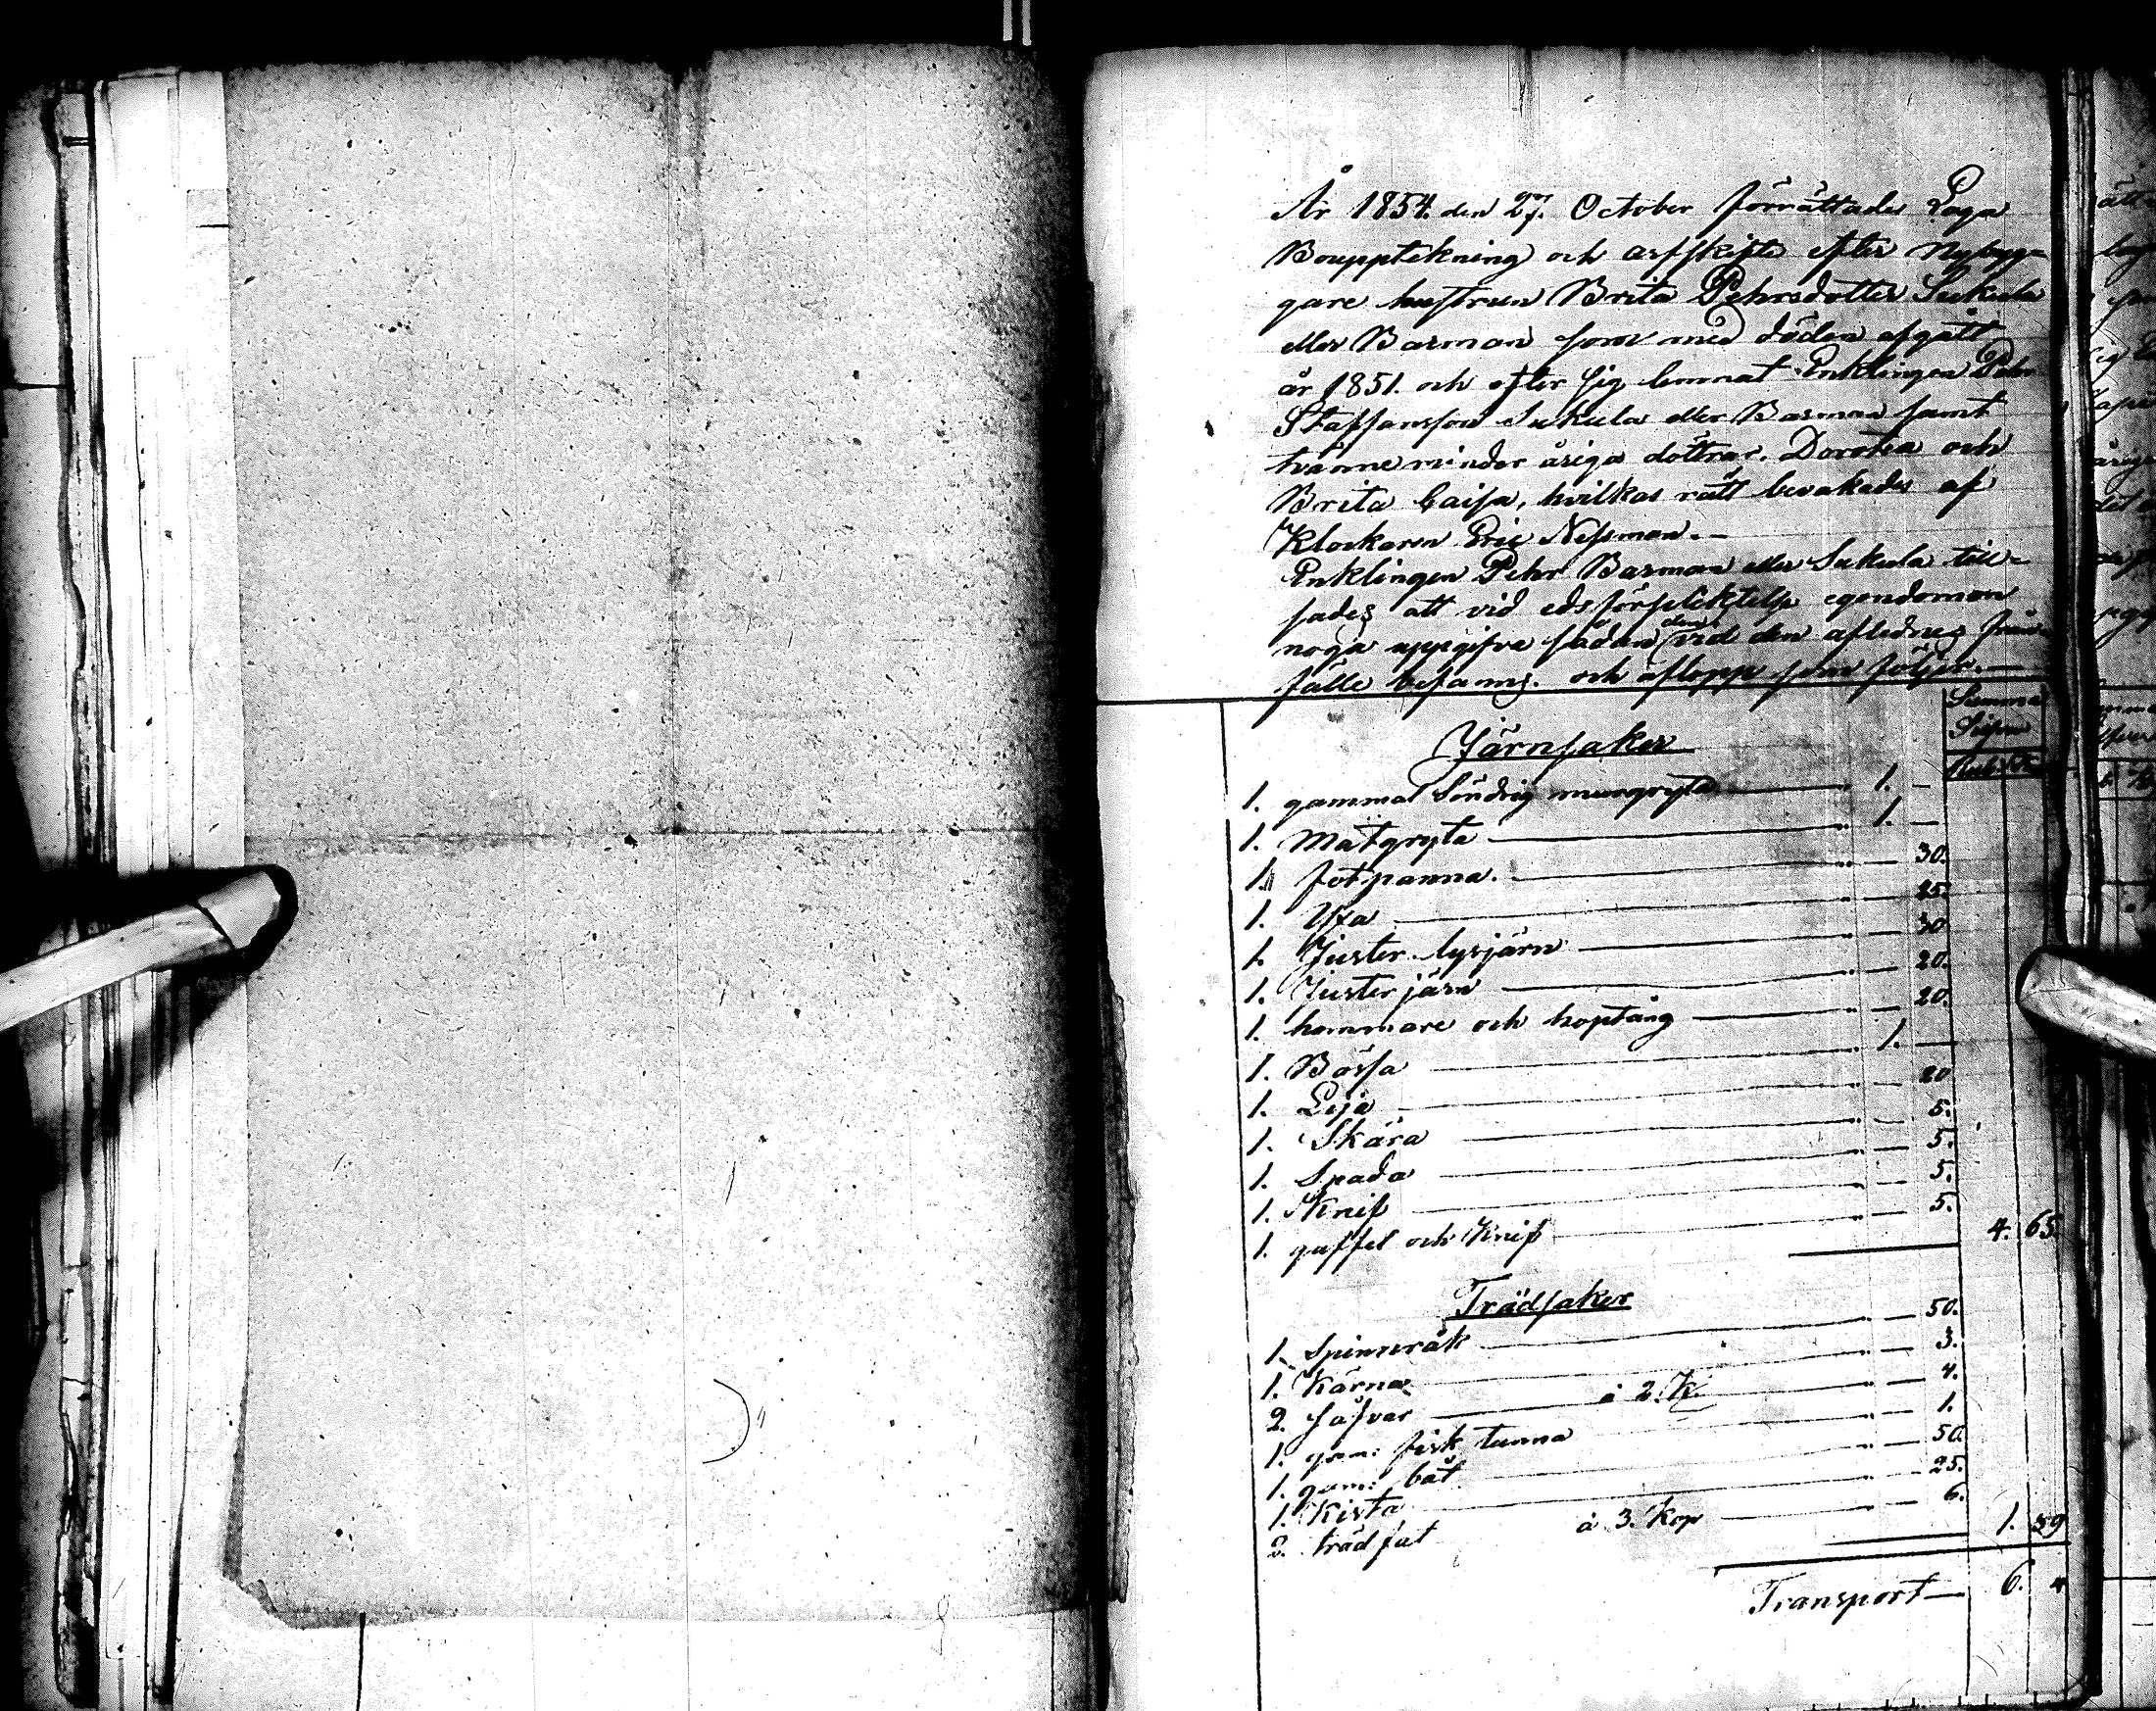 År 1854. den 27. October förrättades Laga
Bouppteckning och arfskifte efter Nybyg=
gare hustrun Brita Pehrsdotter Sukula
eller Barman som med döden afgått
år 1851. och efter sig lemnat Enklingen Pehr
Staffansson Sukula eller Barman samt
tvänne minder åriga döttrar. Dorotea och
Brita Caisa, hvilkas rätt bevakades af
Klockaren Eric Nessman.-
Enklingen Pehr Barman eller Sukula till-
sades att vid edsförpliktelse egendomen
noga uppgifva sådan den vid den aflednes från-
fälle befanns. och aflopp som följer.-
Summa
Silfver
Rub. K.
Järnsaker
1. gammal Söndrig murgryta 1. —
1. Matgryta " 1. —
1. fotpanna. " — 30.
1. Yxa " — 25.
1. Juster lysjärn " — 30
1. Juster järn " — 20.
1. hammare och hoptång " — 20.
1. Bössa " 1. —
1. Lija " — 20
1. Skära " — 5.
1. Spada " — 5.
1. Knif " — 5.
1. gaffel och Knif " — 5. 4. 65.
Trädsaker
1. Spinnråk " — 50.
1. Kärna " — 3.
2. såfvar à 2. K. " — 4.
1. gam: fisk tunna " — 1.
1. gam: båt " — 50.
1. Kista " — 25.
2. träd fat à 3. Kop — 6. 1. 39
Transport — 6. 4